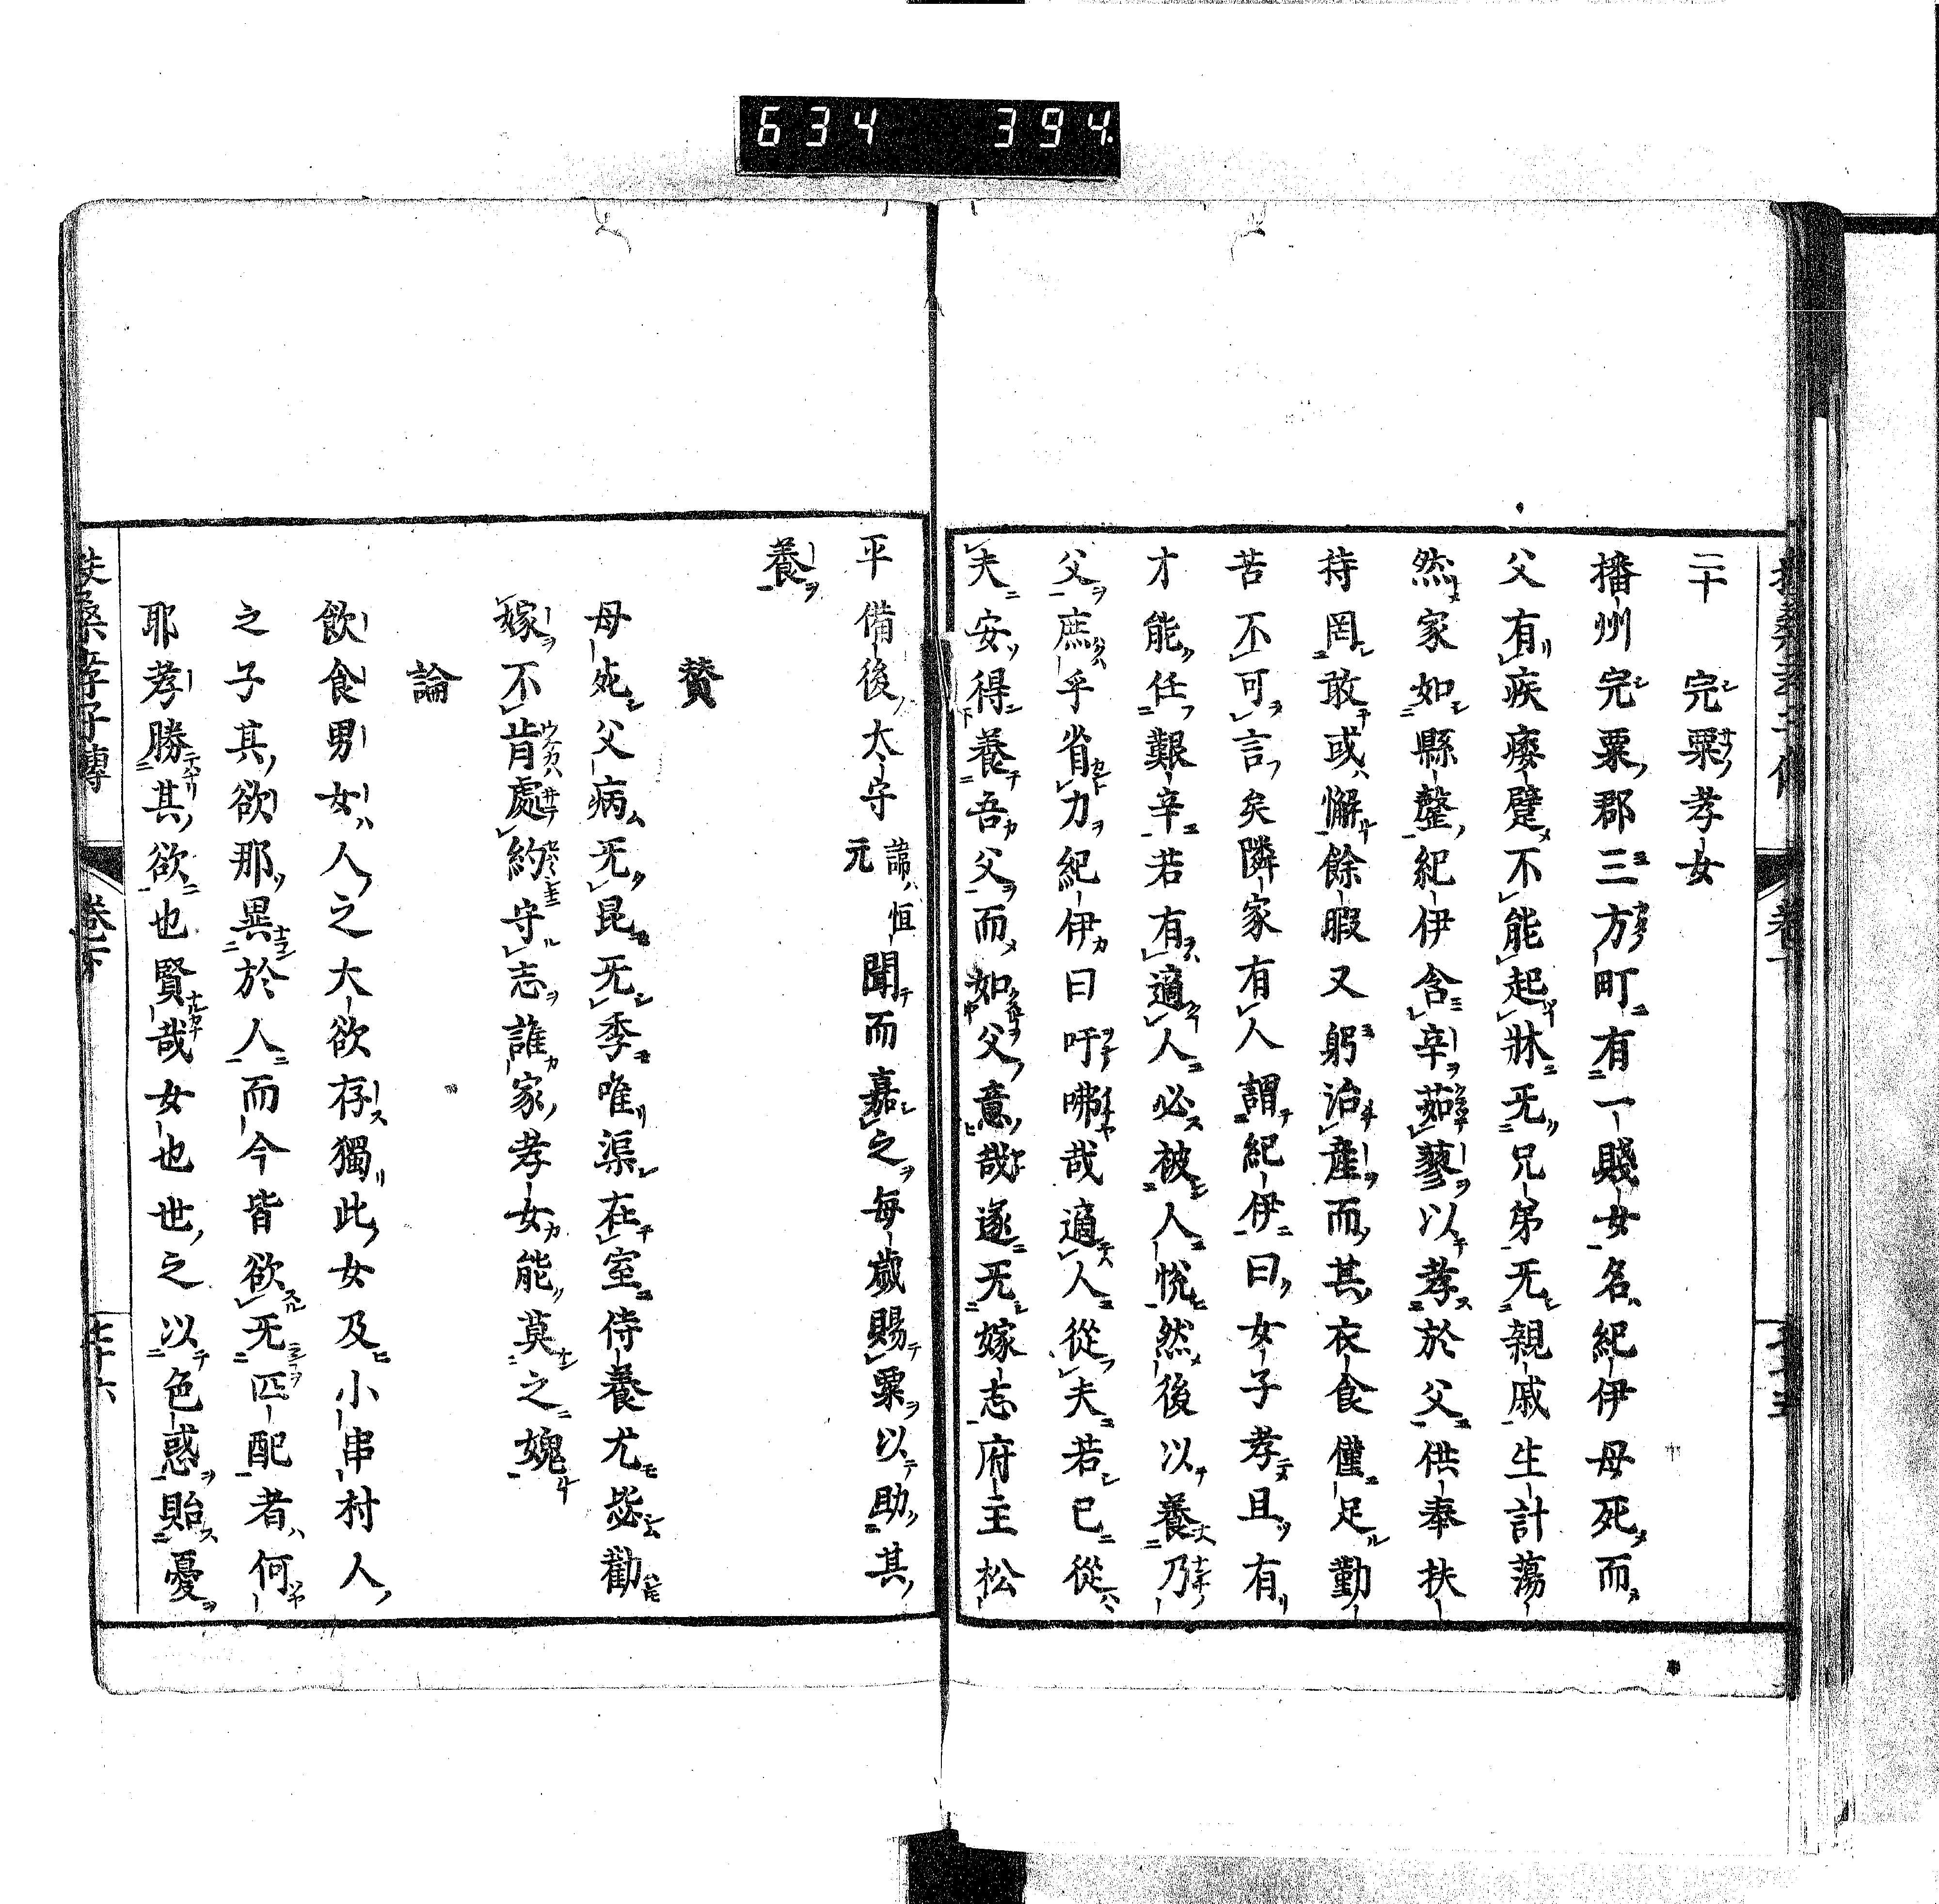 634 394
二十 完粟孝女
播州完粟郡三方町有一賤女名紀伊母死而
父有疾癈躄不能起牀无兄弟无親戚生計蕩
然家如縣罄紀伊含辛茹蓼以孝於父供奉扶
持罔敢或懈餘暇又躬治産而其衣食僅足勤
苦不可言矣隣家有人謂紀伊曰女子孝且有
才能任艱辛若有適人必被人悅然後以養乃
父庶乎省力紀伊曰吁咈哉適人從夫若已從
夫安得養吾父而如父意哉遂无嫁志府主松
平備後太守諱恒元聞而嘉之每歲賜粟以助其
養
贊
母死父病旡昆旡季唯渠在室侍養尤毖勸
嫁不肯處約守志誰家孝女能莫之媿
論
飲食男女人之大欲存獨此女及小串村人
之子其欲那異於人而今皆欲旡匹配者何
耶孝勝其欲也賢哉女也世之以色惑貽憂
扶桑孝子傳 卷下 七十六